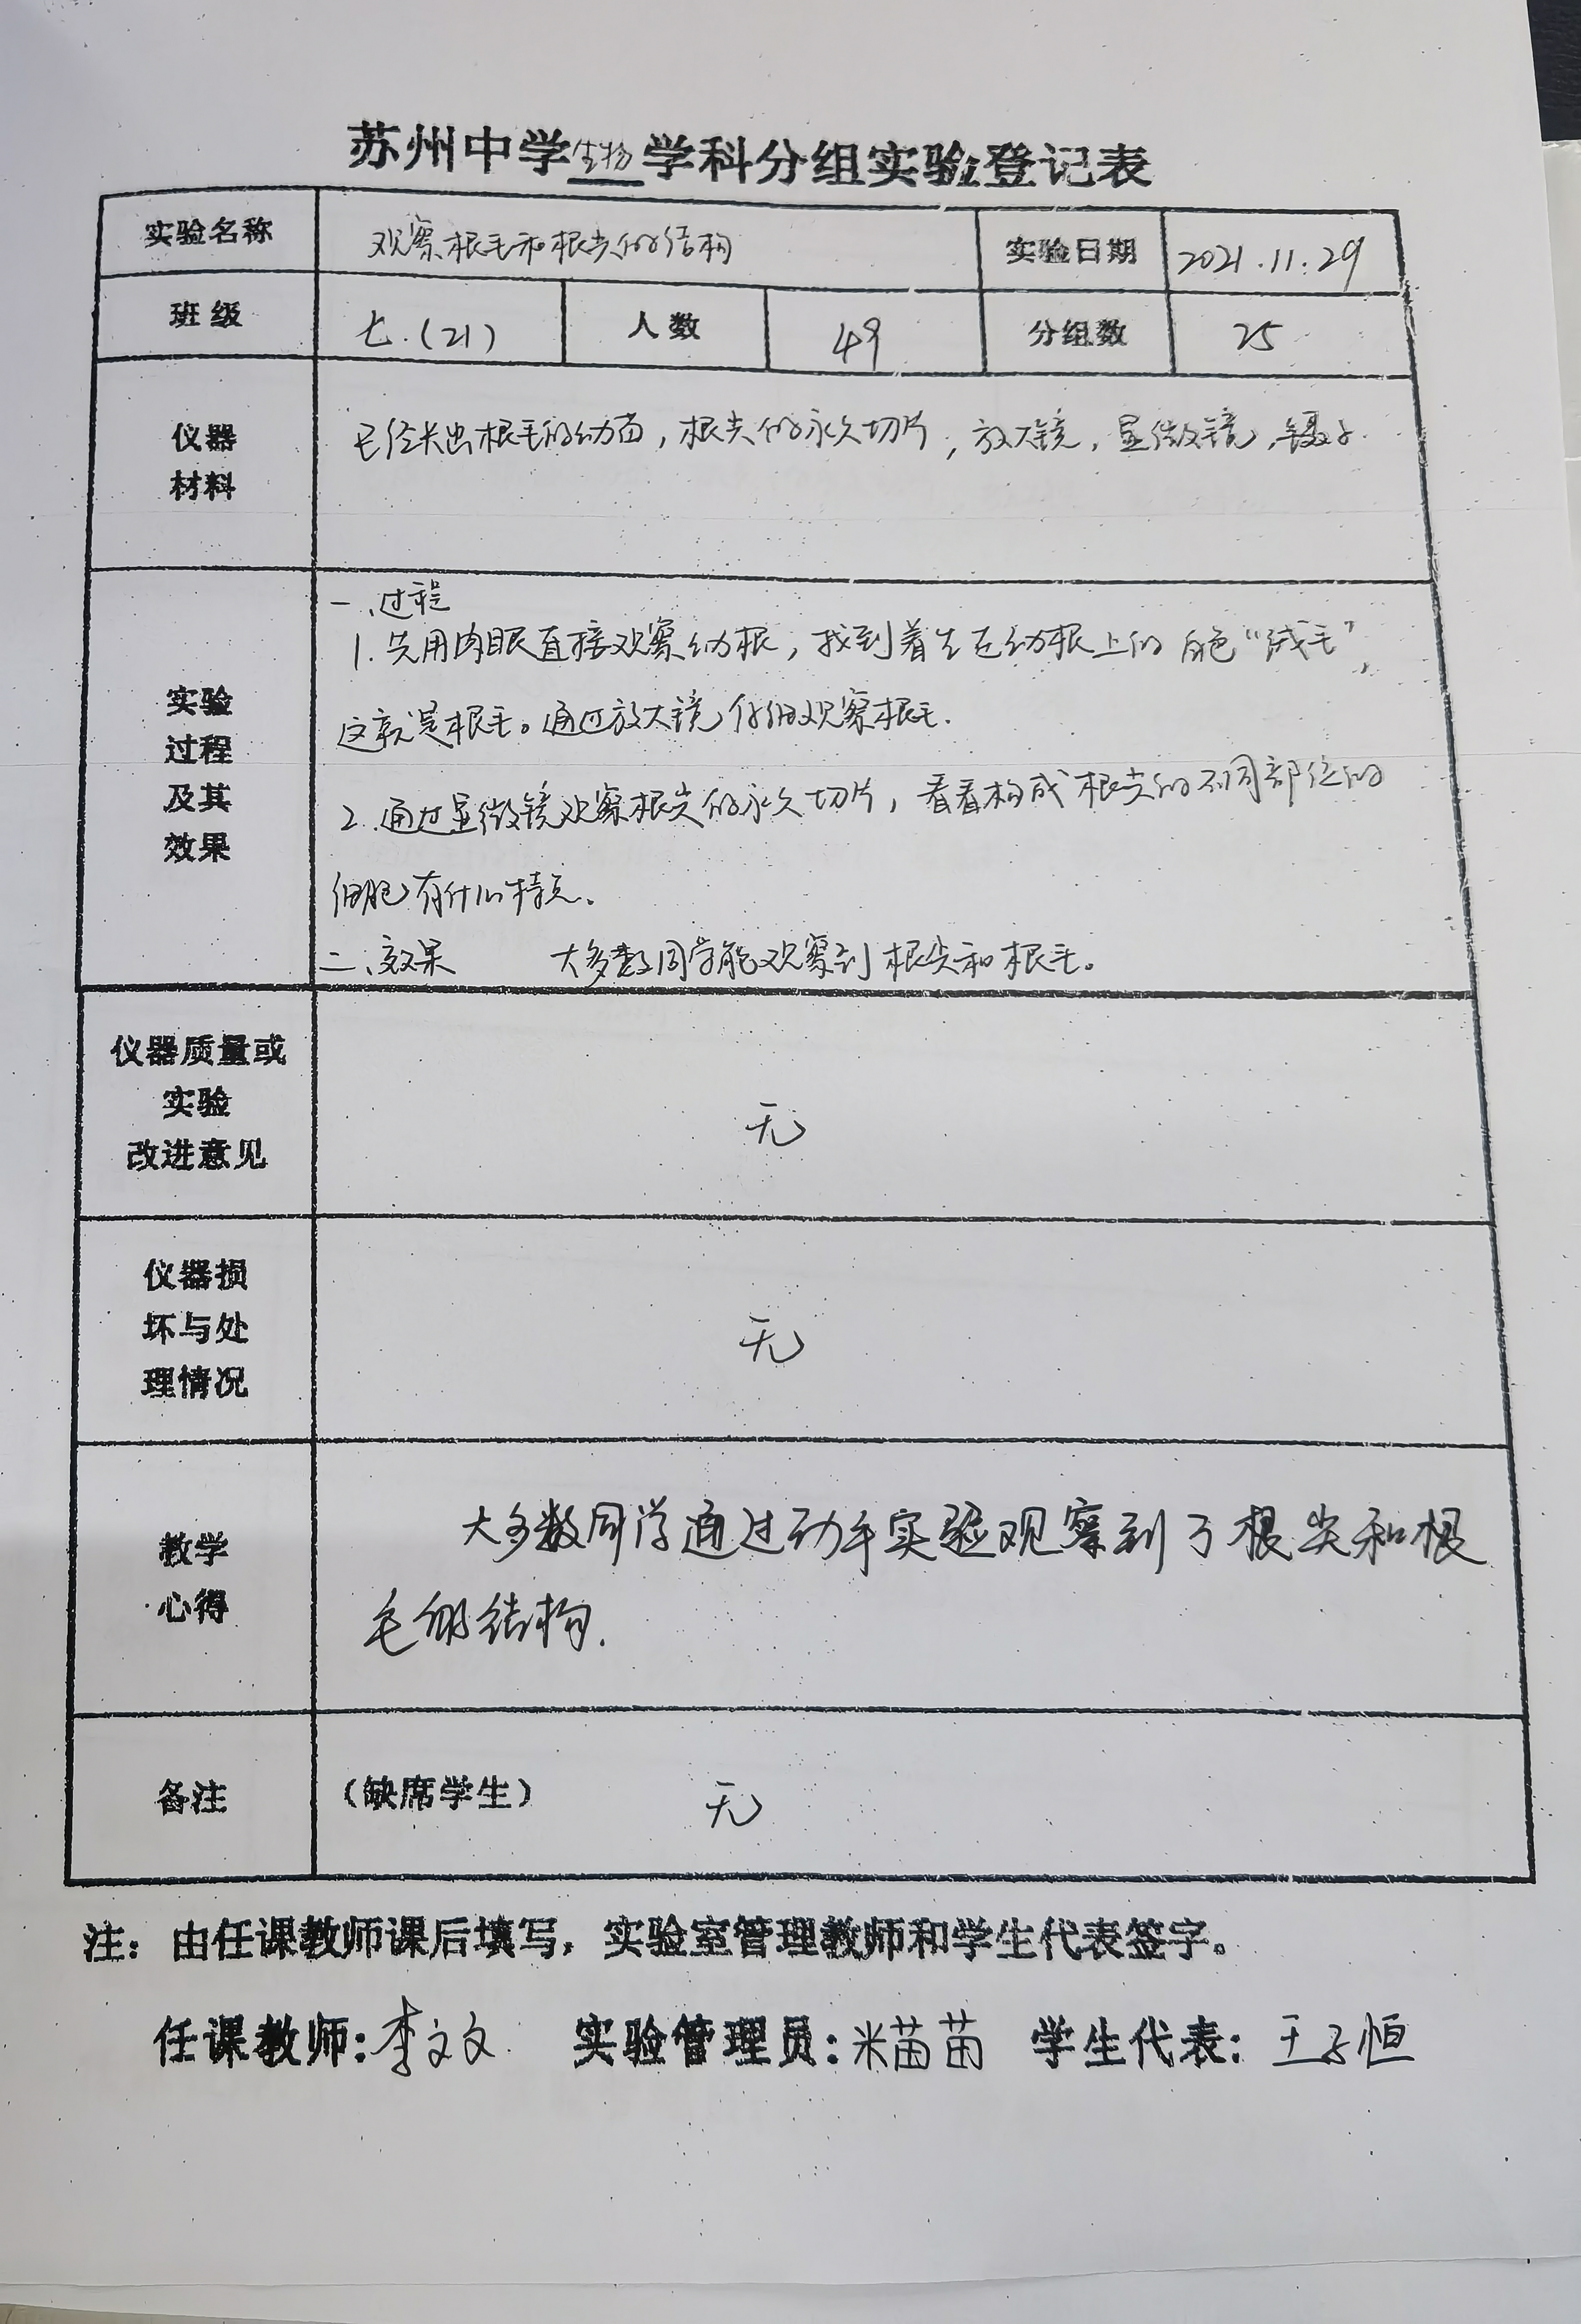 苏州中学生物学科分组实验登记表
实验名称 观察根毛和根尖的结构 实验日期 2021.11.29
班级 七.(21) 人数 49 分组数 25
仪器
材料
已经长出根毛的幼苗，根尖的永久切片，放大镜，显微镜，镊子.
实验
过程
及其
效果
一、过程
1. 先用肉眼直接观察幼根，找到着生在幼根上的白色“绒毛”，
这就是根毛。通过放大镜仔细观察根毛.
2. 通过显微镜观察根尖的永久切片，看看构成根尖的不同部位的
细胞有什么特点.
二、效果 大多数同学能观察到根尖和根毛。
仪器质量或
实验
改进意见
无
仪器损
坏与处
理情况
无
教学
心得
大多数同学通过动手实验观察到了根尖和根
毛的结构.
备注 (缺席学生) 无
注：由任课教师课后填写，实验室管理教师和学生代表签字。
任课教师：李文文 实验管理员：米苗苗 学生代表：王子恒